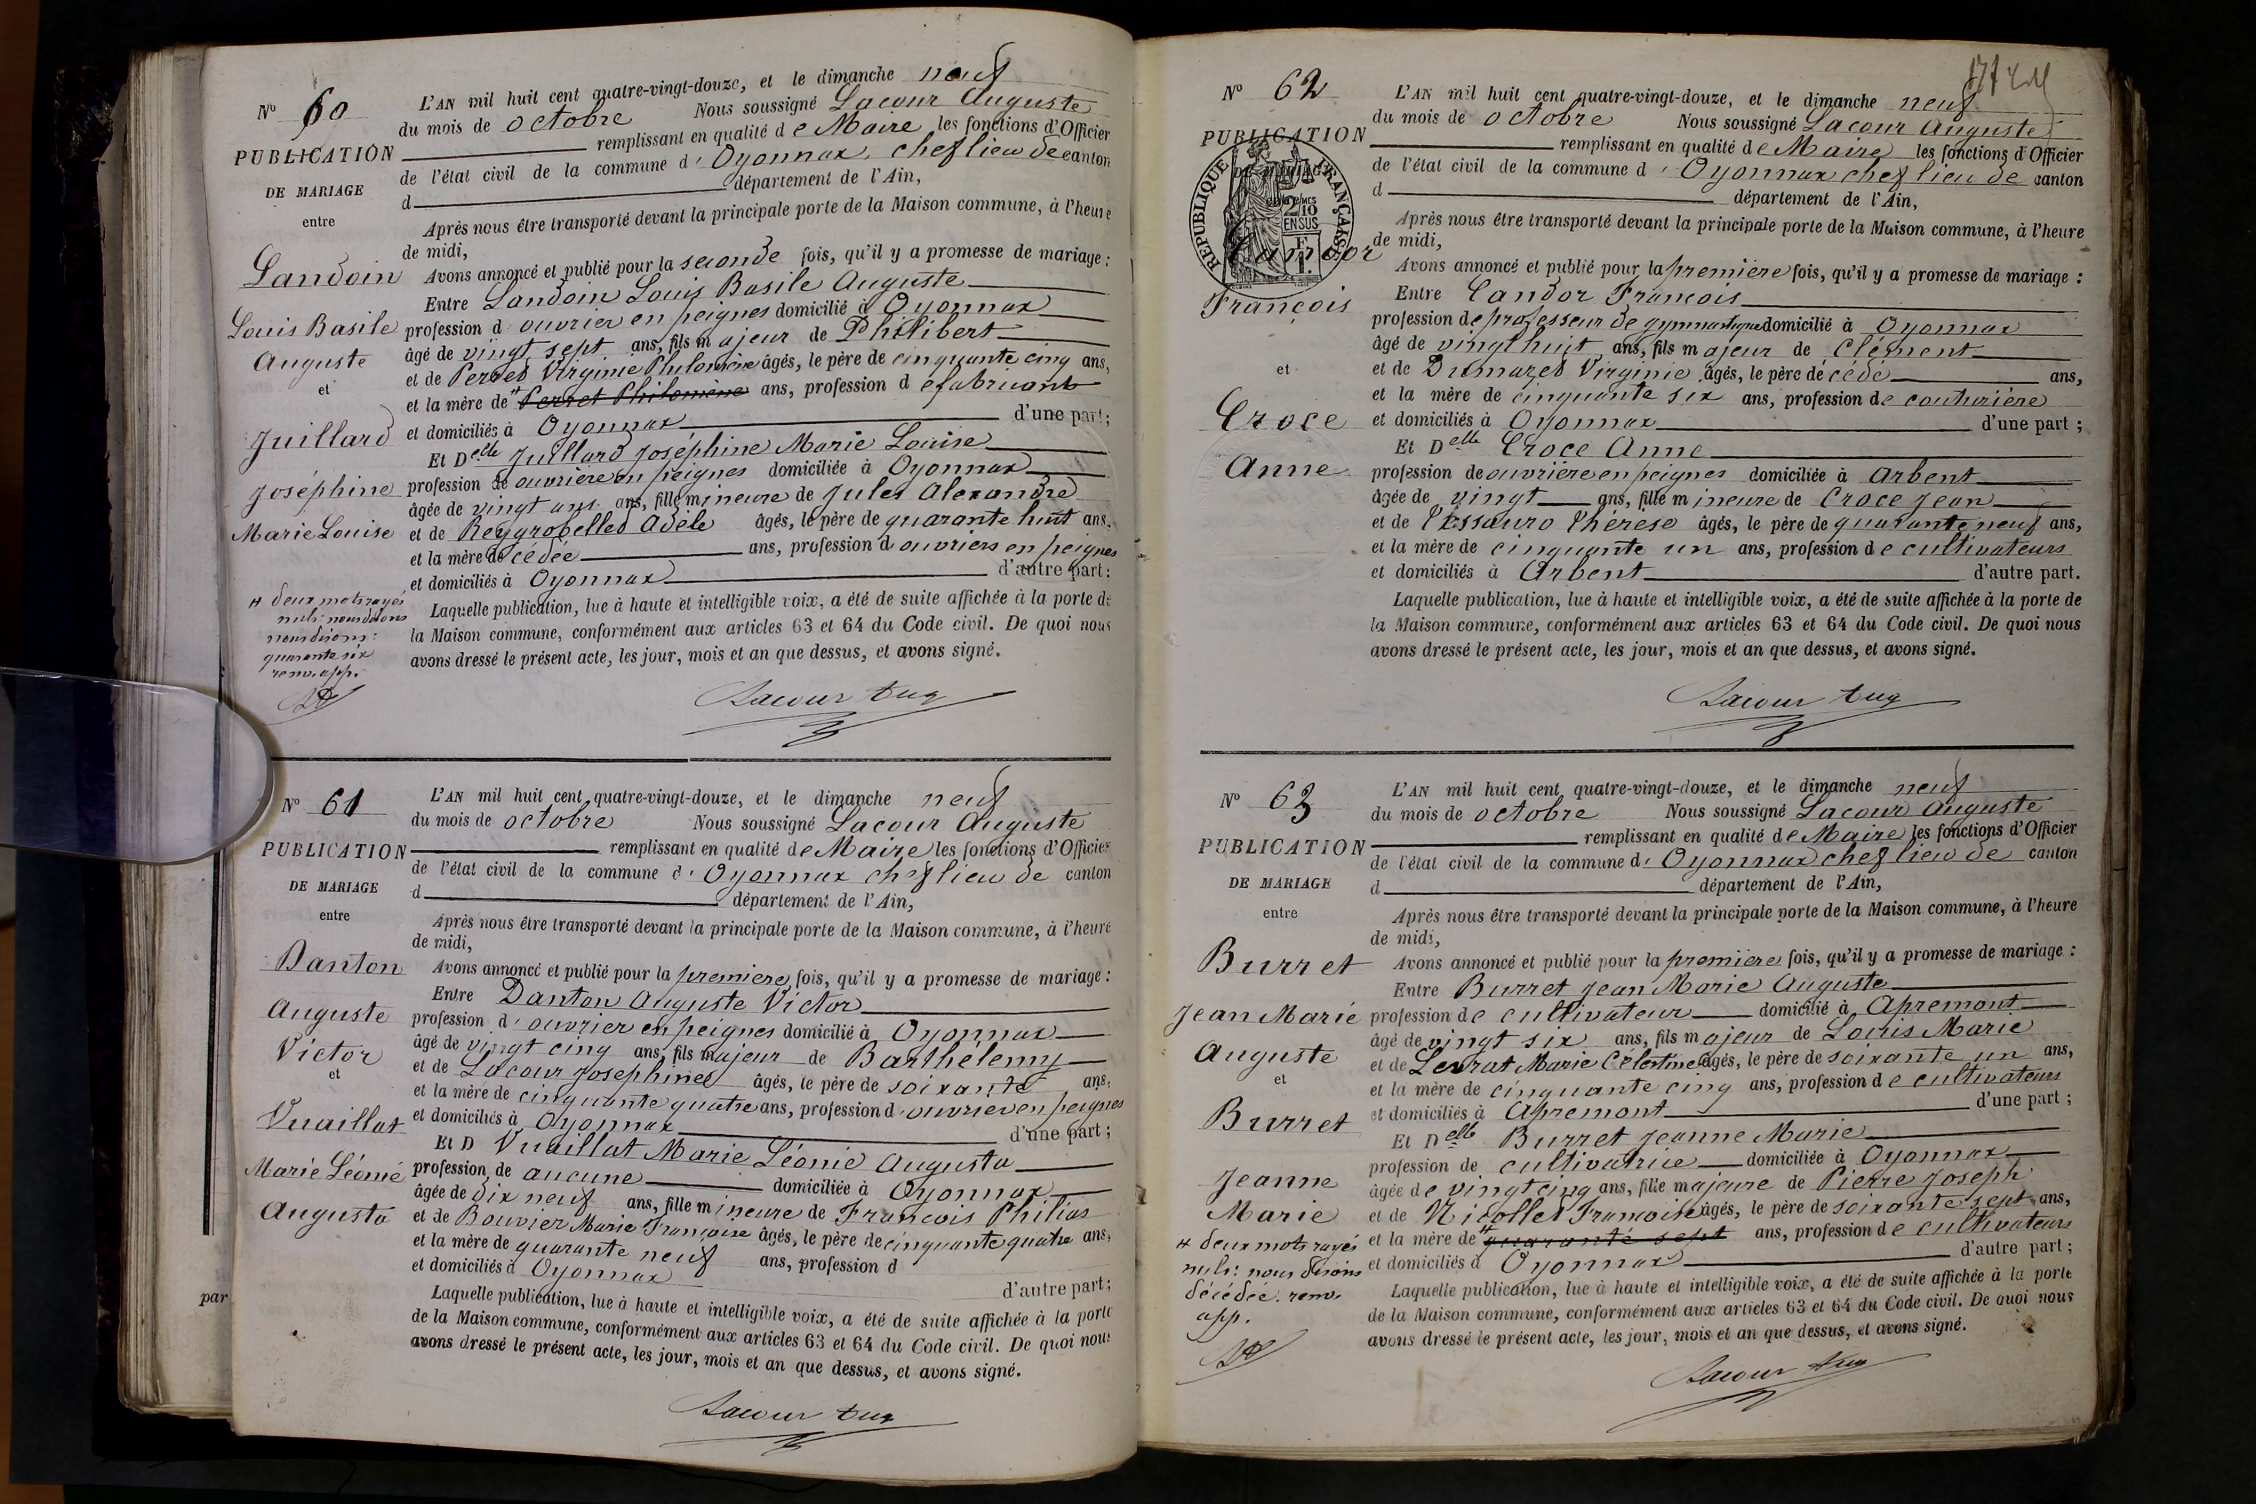 N° 60
PUBLICATION
DE MARIAGE
entre
Landoin
Louis Basile
Auguste
et
Juillard
Joséphine
Marie Louise
# deux mots rayés
nuls: nous disons
nous disons:
quarante six
renv. app.
L'AN mil huit cent quatre-vingt-douze, et le dimanche neuf
du mois de octobre Nous soussigné Lacour Auguste
remplissant en qualité de Maire les fonctions d'Officier
de l'état civil de la commune d'Oyonnax, chef lieu de canton
d département de l'Ain,
Après nous être transporté devant la principale porte de la Maison commune, à l'heure
de midi,
Avons annoncé et publié pour la seconde fois, qu'il y a promesse de mariage :
Entre Landoin Louis Basile Auguste
profession d'ouvrier en peignes domicilié à Oyonnax
âgé de vingt sept ans, fils majeur de Philibert
et de Perret Virginie Philomène âgés, le père de cinquante cinq ans,
et la mère de # Perret Philomène ans, profession de fabricant
et domiciliés à Oyonnax d'une part;
Et Delle Juillard Joséphine Marie Louise
profession de ouvrière en peignes domiciliée à Oyonnax
âgée de vingt ans ans, fille mineure de Jules Alexandre
et de Reygrobellet Adèle âgés, le père de quarante huit ans,
et la mère décédée ans, profession d ouvriers en peignes
et domiciliés à Oyonnax d'autre part:
Laquelle publication, lue à haute et intelligible voix, a été de suite affichée à la porte de
la Maison commune, conformément aux articles 63 et 64 du Code civil. De quoi nous
avons dressé le présent acte, les jour, mois et an que dessus, et avons signé.
Lacour Aug
N° 61
PUBLICATION
DE MARIAGE
entre
Danton
Auguste
Victor
et
Vuaillat
Marie Léonie
Augusta
par
L'AN mil huit cent quatre-vingt-douze, et le dimanche neuf
du mois de octobre Nous soussigné Lacour Auguste
remplissant en qualité de Maire les fonctions d'Officier
de l'état civil de la commune d'Oyonnax chef lieu de canton
d département de l'Ain,
Après nous être transporté devant la principale porte de la Maison commune, à l'heure
de midi,
Avons annoncé et publié pour la première fois, qu'il y a promesse de mariage :
Entre Danton Auguste Victor
profession d'ouvrier en peignes domicilié à Oyonnax
âgé de vingt cinq ans, fils majeur de Barthélemy
et de Lacour Josephine âgés, le père de soixante ans,
et la mère de cinquante quatre ans, profession d'ouvrier en peignes
et domiciliés à Oyonnax d'une part;
Et D Vuaillat Marie Léonie Augusta
profession de aucune domiciliée à Oyonnax
âgée de dix neuf ans, fille mineure de François Philias
et de Bouvier Marie Françoise âgés, le père de cinquante quatre ans,
et la mère de quarante neuf ans, profession d
et domiciliés à Oyonnax d'autre part;
Laquelle publication, lue à haute et intelligible voix, a été de suite affichée à la porte
de la Maison commune, conformément aux articles 63 et 64 du Code civil. De quoi nous
avons dressé le présent acte, les jour, mois et an que dessus, et avons signé.
Lacour Aug
N° 62
PUBLICATION
DE MARIAGE
RÉPUBLIQUE FRANÇAISE
2/10 MES
EN SUS
Candor
François
et
Croce
Anne
L'AN mil huit cent quatre-vingt-douze, et le dimanche neuf
du mois de octobre Nous soussigné Lacour Auguste
remplissant en qualité de Maire les fonctions d'Officier
de l'état civil de la commune d'Oyonnax chef lieu de canton
d département de l'Ain,
Après nous être transporté devant la principale porte de la Maison commune, à l'heure
de midi,
Avons annoncé et publié pour la première fois, qu'il y a promesse de mariage :
Entre Candor François
profession de professeur de gymnastique domicilié à Oyonnax
âgé de vingt huit ans, fils majeur de Clément
et de Dumazet Virginie âgés, le père décédé ans,
et la mère de cinquante six ans, profession de couturière
et domiciliés à Oyonnax d'une part ;
Et Delle Croce Anne
profession de ouvrière en peignes domiciliée à Arbent
âgée de vingt ans, fille mineure de Croce Jean
et de Thérèse âgés, le père de quarante neuf ans,
et la mère de cinquante un ans, profession de cultivateurs
et domiciliés à Arbent d'autre part.
Laquelle publication, lue à haute et intelligible voix, a été de suite affichée à la porte de
la Maison commune, conformément aux articles 63 et 64 du Code civil. De quoi nous
avons dressé le présent acte, les jour, mois et an que dessus, et avons signé.
Lacour Aug
N° 63
PUBLICATION
DE MARIAGE
entre
Burret
Jean Marie
Auguste
et
Burret
Jeanne
Marie
# deux mots rayés
nuls: nous disons
décédée. renv.
app.
L'AN mil huit cent quatre-vingt-douze, et le dimanche neuf
du mois de octobre Nous soussigné Lacour Auguste
remplissant en qualité de Maire les fonctions d'Officier
de l'état civil de la commune d'Oyonnax chef lieu de canton
d département de l'Ain,
Après nous être transporté devant la principale porte de la Maison commune, à l'heure
de midi,
Avons annoncé et publié pour la première fois, qu'il y a promesse de mariage :
Entre Burret Jean Marie Auguste
profession de cultivateur domicilié à Apremont
âgé de vingt six ans, fils majeur de Louis Marie
et de Levrat Marie Célestine âgés, le père de soixante un ans,
et la mère de cinquante cinq ans, profession de cultivateurs
et domiciliés à Apremont d'une part ;
Et Delle Burret Jeanne Marie
profession de cultivatrice domiciliée à Oyonnax
âgée de vingt cinq ans, fille majeure de Pierre Joseph
et de Nicollet Françoise âgés, le père de soixante sept ans,
et la mère de # quarante sept ans, profession de cultivateurs
et domiciliés à Oyonnax d'autre part ;
Laquelle publication, lue à haute et intelligible voix, a été de suite affichée à la porte
de la Maison commune, conformément aux articles 63 et 64 du Code civil. De quoi nous
avons dressé le présent acte, les jour, mois et an que dessus, et avons signé.
Lacour Aug